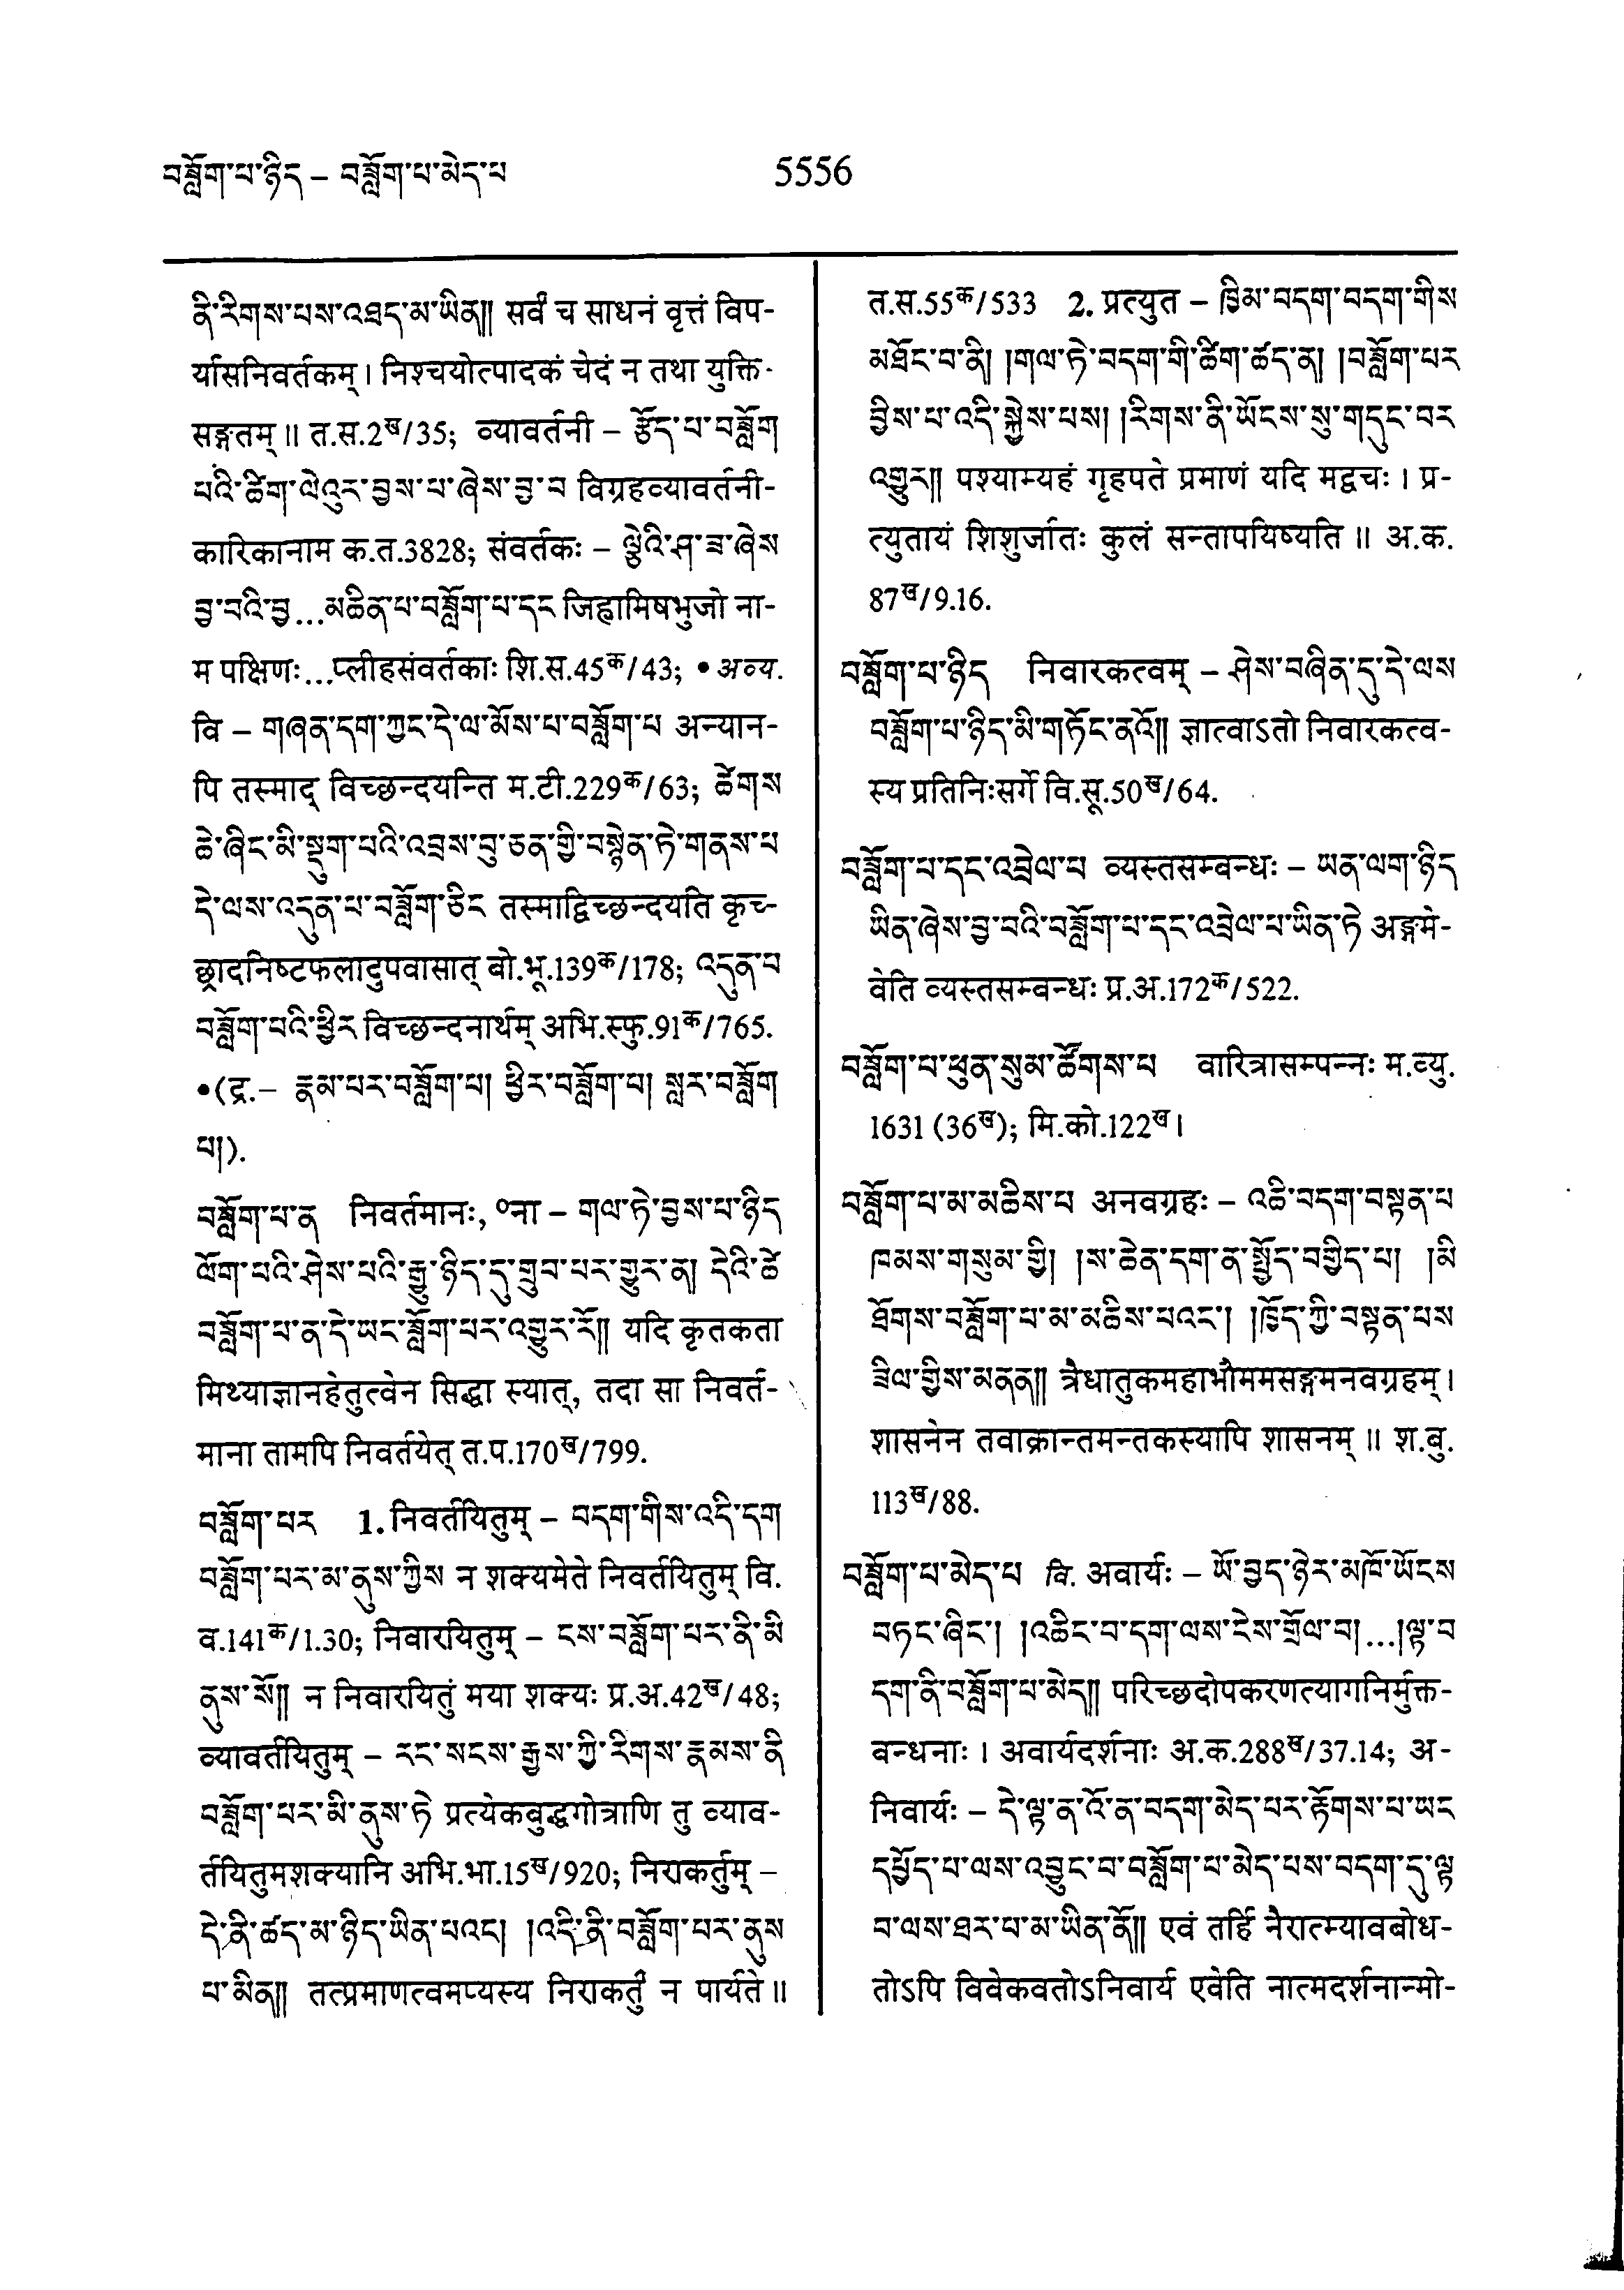 བཟློག་པ་ཉིད – བཟློག་པ་མེད་པ
5556
ནི་རིགས་པས་འཐད་མ་ཡིན།། सर्वं च साधनं वृत्तं विप-
र्यासनिवर्तकम् । निश्चयोत्पादकं चेदं न तथा युक्ति-
सङ्गतम् ॥ त.स.2ख/35; व्यावर्तनी – རྩོད་པ་བཟློག
པའི་ཚིག་ལེའུར་བྱས་པ་ཞེས་བྱ་བ विग्रहव्यावर्तनी-
कारिकानाम क.त.3828; संवर्तकः – ལྕེའི་ཤ་ཟ་ཞེས
བྱ་བའི་བྱ...མཆིན་པ་བཟློག་པ་དང जिह्वामिषभुजो ना-
म पक्षिणः...प्लीहसंवर्तकाः शि.स.45क/43; • अव्य.
वि – གཞན་དག་ཀྱང་དེ་ལ་མོས་པ་བཟློག་པ अन्यान-
पि तस्माद् विच्छन्दयन्ति म.टी.229क/63; ཚེགས
ཆེ་ཞིང་མི་སྡུག་པའི་འབྲས་བུ་ཅན་གྱི་བསྙེན་ཏེ་གནས་པ
དེ་ལས་འདུན་པ་བཟློག་ཅིང तस्माद्विच्छन्दयति कृच-
छ्रादनिष्टफलादुपवासात् बो.भू.139क/178; འདུན་པ
བཟློག་པའི་ཕྱིར विच्छन्दनार्थम् अभि.स्फु.91क/765.
•(द्र.– རྣམ་པར་བཟློག་པ། ཕྱིར་བཟློག་པ། སླར་བཟློག
པ།).
བཟློག་པ་ན निवर्तमानः, ०ना – གལ་ཏེ་བྱས་པ་ཉིད
ལོག་པའི་ཤེས་པའི་རྒྱུ་ཉིད་དུ་གྲུབ་པར་གྱུར་ན། དེའི་ཚེ
བཟློག་པ་ན་དེ་ཡང་ཟློག་པར་འགྱུར་རོ།། यदि कृतकता
मिथ्याज्ञानहेतुत्वेन सिद्धा स्यात्, तदा सा निवर्त-
माना तामपि निवर्तयेत् त.प.170ख/799.
བཟློག་པར 1. निवर्तयितुम् – བདག་གིས་འདི་དག
བཟློག་པར་མ་ནུས་ཀྱིས न शक्यमेते निवर्तयितुम् वि.
व.141क/1.30; निवारयितुम् – ངས་བཟློག་པར་ནི་མི
ནུས་སོ།། न निवारयितुं मया शक्यः प्र.अ.42ख/48;
व्यावर्तयितुम् – རང་སངས་རྒྱས་ཀྱི་རིགས་རྣམས་ནི
བཟློག་པར་མི་ནུས་ཏེ प्रत्येकबुद्धगोत्राणि तु व्याव-
र्तयितुमशक्यानि अभि.भा.15ख/920; निराकर्तुम् –
དེ་ནི་ཚད་མ་ཉིད་ཡིན་པའང། །འདི་ནི་བཟློག་པར་ནུས
པ་མིན།། तत्प्रमाणत्वमप्यस्य निराकर्तुं न पार्यते ॥
त.स.55क/533 2. प्रत्युत – ཁྱིམ་བདག་བདག་གིས
མཐོང་བ་ནི། །གལ་ཏེ་བདག་གི་ཚིག་ཚད་ན། །བཟློག་པར
བྱིས་པ་འདི་སྐྱེས་པས། །རིགས་ནི་ཡོངས་སུ་གདུང་བར
འགྱུར།། पश्याम्यहं गृहपते प्रमाणं यदि मद्वचः । प्र-
त्युतायं शिशुर्जातः कुलं सन्तापयिष्यति ॥ अ.क.
87ख/9.16.
བཟློག་པ་ཉིད निवारकत्वम् – ཤེས་བཞིན་དུ་དེ་ལས
བཟློག་པ་ཉིད་མི་གཏོང་ནའོ།། ज्ञात्वाऽतो निवारकत्व-
स्य प्रतिनिःसर्गे वि.सू.50ख/64.
བཟློག་པ་དང་འབྲེལ་པ व्यस्तसम्बन्धः – ཡན་ལག་ཉིད
ཡིན་ཞེས་བྱ་བའི་བཟློག་པ་དང་འབྲེལ་པ་ཡིན་ཏེ अङ्गमे-
वेति व्यस्तसम्बन्धः प्र.अ.172क/522.
བཟློག་པ་ཕུན་སུམ་ཚོགས་པ वारित्रासम्पन्नः म.व्यु.
1631 (36ख); मि.को.122ख।
བཟློག་པ་མ་མཆིས་པ अनवग्रहः – འཆི་བདག་བསྟན་པ
ཁམས་གསུམ་གྱི། །ས་ཆེན་དག་ན་སྤྱོད་བགྱིད་པ། །མི
ཐོགས་བཟློག་པ་མ་མཆིས་པའང་། །ཁྱོད་ཀྱི་བསྟན་པས
ཟིལ་གྱིས་མནན།། त्रैधातुकमहाभौममसङ्गमनवग्रहम् ।
शासनेन तवाक्रान्तमन्तकस्यापि शासनम् ॥ श.बु.
113ख/88.
བཟློག་པ་མེད་པ वि. अवार्यः – ཡོ་བྱད་ཉེར་མཁོ་ཡོངས
བཏང་ཞིང་། །འཆིང་བ་དག་ལས་ངེས་གྲོལ་བ།...།ལྟ་བ
དག་ནི་བཟློག་པ་མེད།། परिच्छदोपकरणत्यागनिर्मुक्त-
बन्धनाः । अवार्यदर्शनाः अ.क.288ख/37.14; अ-
निवार्यः – དེ་ལྟ་ན་འོ་ན་བདག་མེད་པར་རྟོགས་པ་ཡང
དཔྱོད་པ་ལས་འབྱུང་བ་བཟློག་པ་མེད་པས་བདག་དུ་ལྟ
བ་ལས་ཐར་པ་མ་ཡིན་ནོ།། एवं तर्हि नैरात्म्यावबोध-
तोऽपि विवेकवतोऽनिवार्य एवेति नात्मदर्शनान्मो-